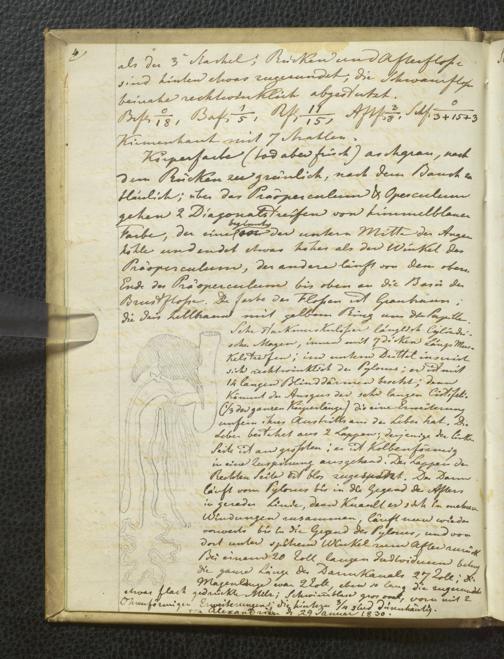 4
als der 3te Stachel; Rücken und Afterflosse
sind hinten etwas zugerundet, die Schwanzflosse
beinahe rechtwinklich abgestutzt.
Brf. 0/18, Baf. 1/5, Rf. 11/15, Aff. 3/8, Schf. 0/3+15+3
Kiemenhaut mit 7 Strahlen.
Körperfarbe (tod aber frisch) aschgrau, nach
dem Rücken zu grünlich, nach dem Bauch
bläulich; über das Präoperculum & Operculum
gehen 2 Diagonalstreifen von himmelblauer
Farbe, der eine beginnt von der untern Mitte der Augen
höhle und endet etwas höher als der Winkel des
Präoperculum, der andere läuft von dem obern
Ende des Präoperculum bis oben an die Basis der
Brustflosse. Die Farbe der Flossen ist Graubraun;
die Iris hellbraun mit gelbem Ring um die Pupille.
länglich Cylindri-
scher Magen, innen mit 7 dicken Längs Mus-
kelstreifen; im untern Drittel inserirt
sich rechtwinklich der Pylorus; er ist mit
14 langen Blinddärmen besetzt; dann
kömmt der Ausgang der sehr langen Cystfell
(1/3 der ganzen Körperlänge) die eine Erweiterung
unfern ihres Austritts aus der Leber hat. Die
Leber besteht aus 2 Lappen; derjenige der linken
Seite ist am größten; er ist Kolbenförmig
in eine Zuspitzung ausgehend. Der Lappen der
Rechten Seite ist blos zugespitzt. Der Darm
läuft vom Pylorus bis in die Gegend des Afters
in gerader Linie, dann knäuelt er sich in mehrere
Windungen zusammen, läuft nun wieder
vorwerts bis in die Gegend des Pylorus, und von
dort unter spitzem Winkel zum After zurück
Bei einem 20 Zoll langen Individuum betrug
die ganze Länge des Darmkanals 27 Zoll; die
Magenlänge war 2 Zoll, eben so lang die zugerundete
etwas flach gedrückte Milz; Schwimmblase gros oval, vorn mit 2
Ohrenförmigen Erweiterungen; die hintern 3/4 sind dünnhäutig.
Alexandrien d. 29 Januar 1830.